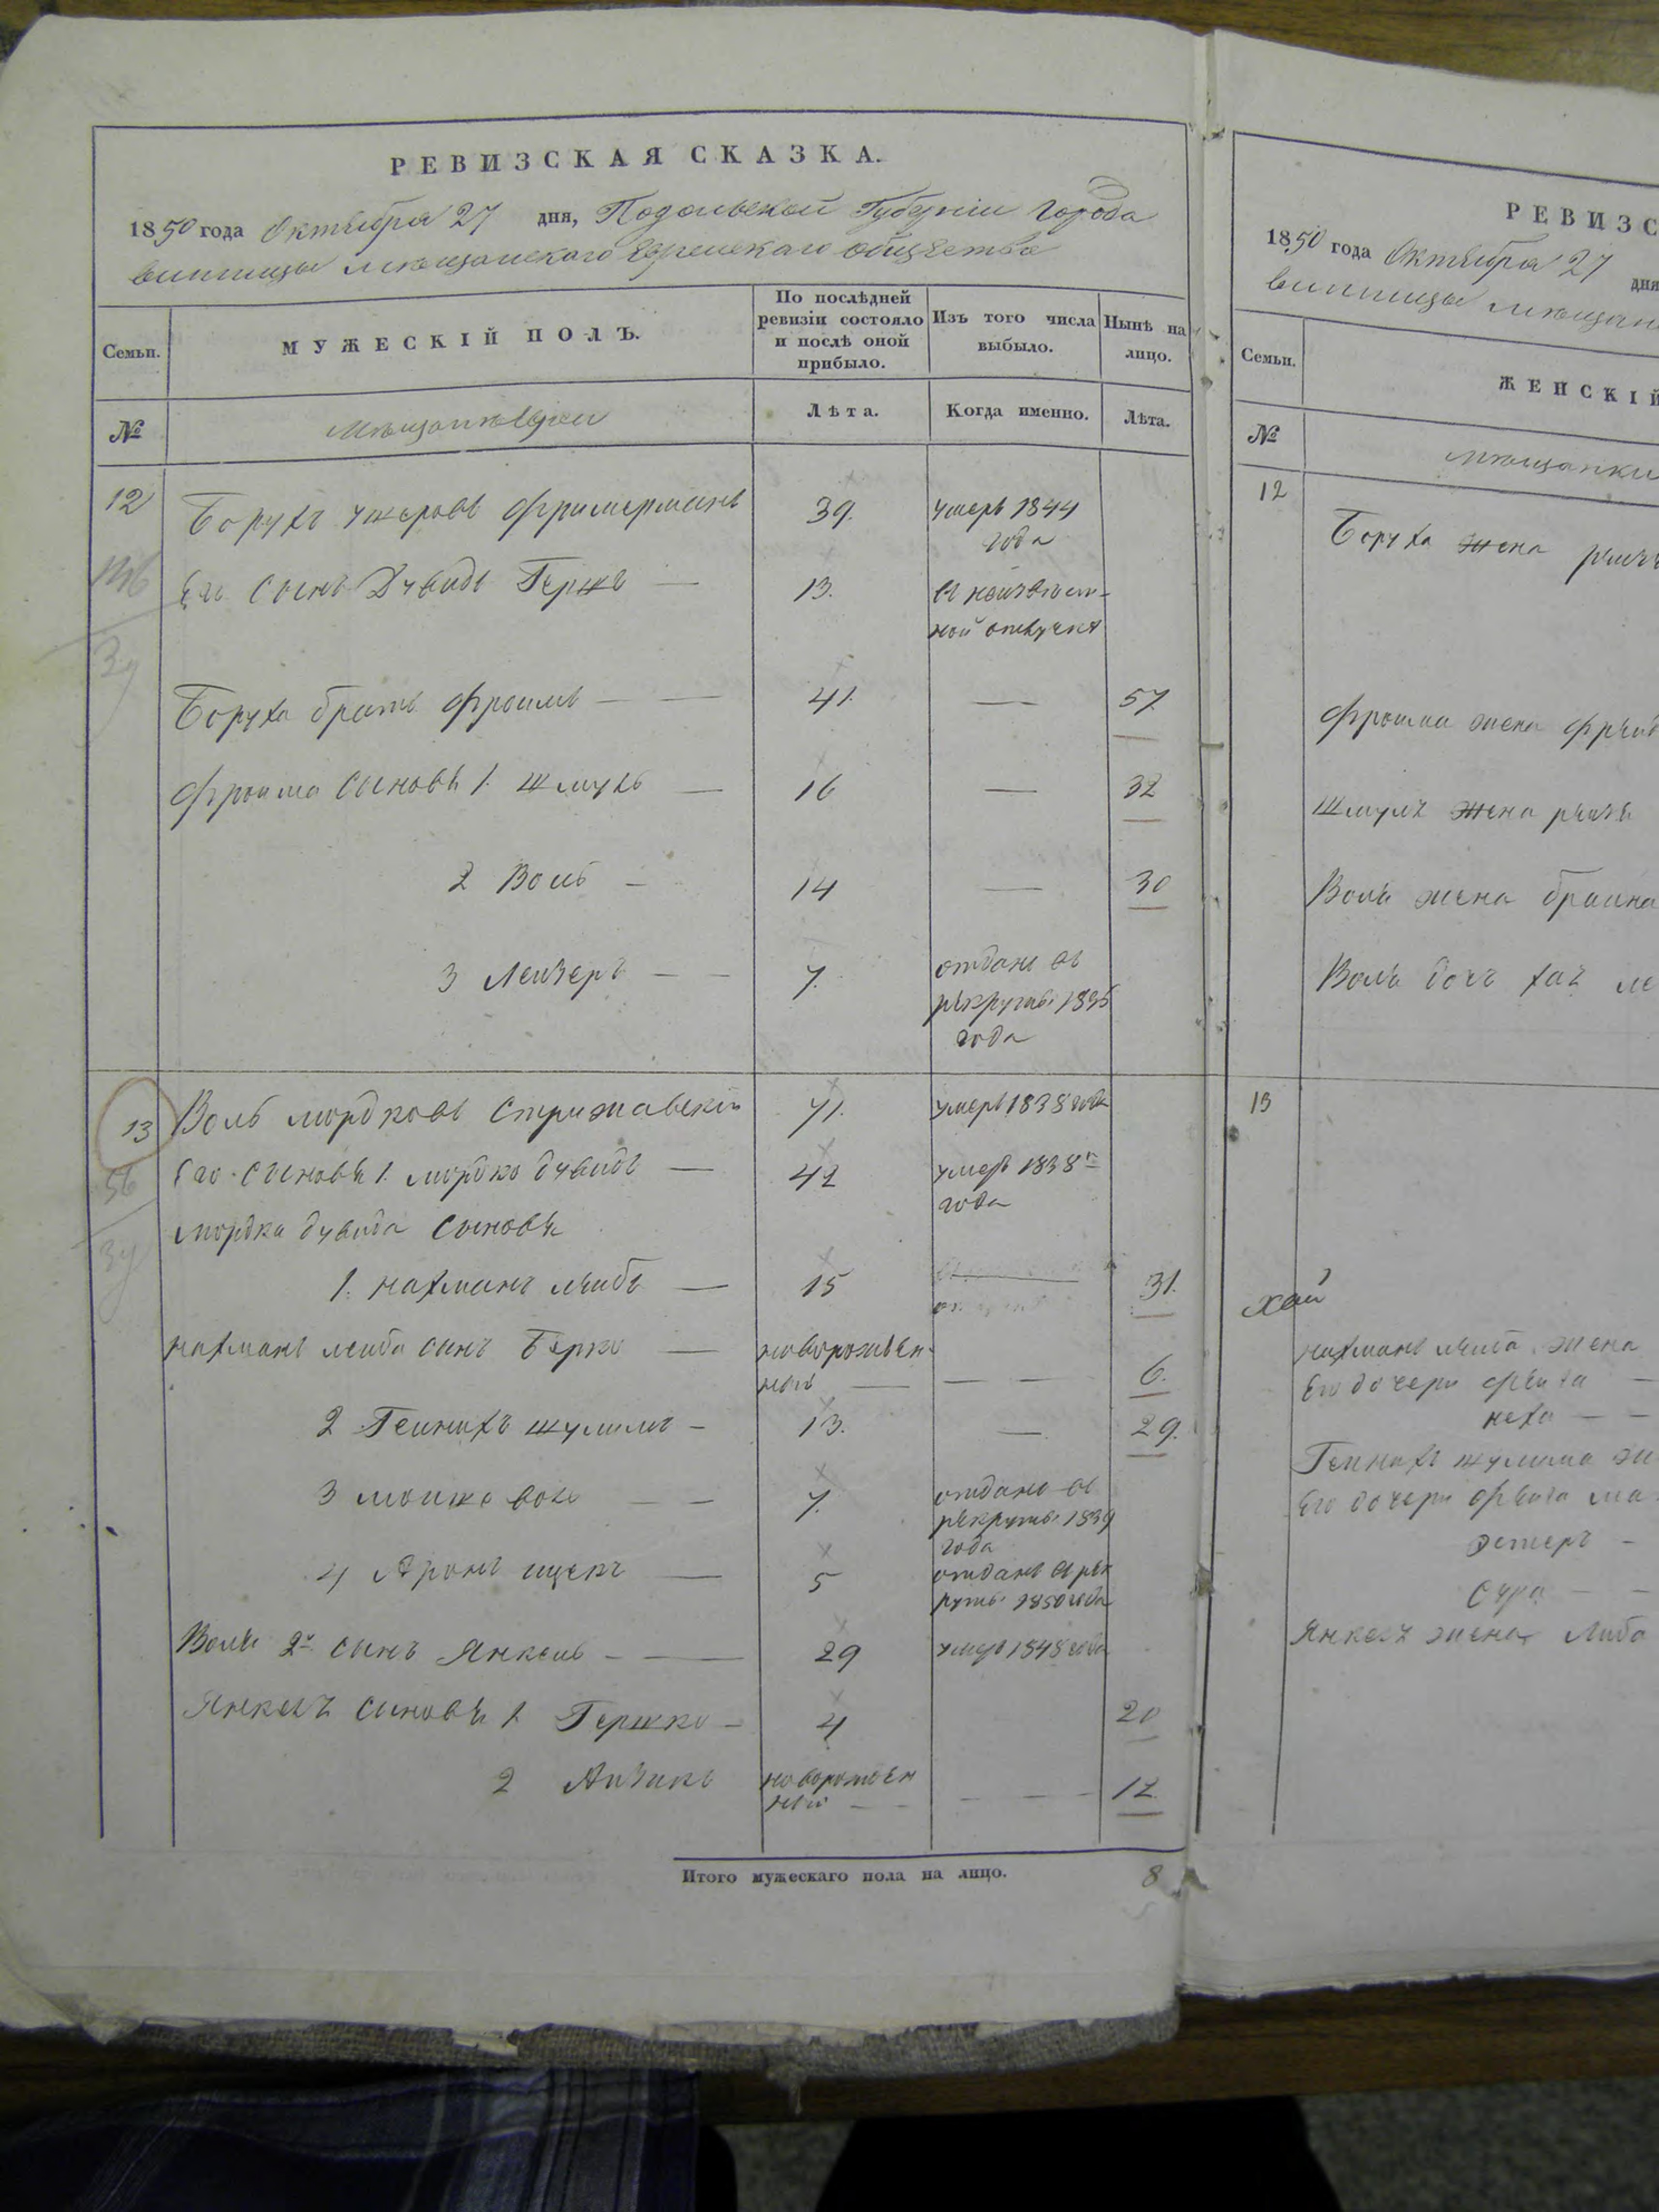 РЕВИЗСКАЯ СКАЗКА.
1850 года Октября 27 дня, Подольской Губерніи Города
Винницы мѣщанскаго Еврейскаго общества
Семьи.
МУЖЕСКІЙ ПОЛЪ.
По послѣдней ревизіи состояло и послѣ оной прибыло.
Изъ того числа выбыло.
Нынѣ на лицо.
№
мѣщане Евреи
Лѣта.
Когда именно.
Лѣта.
12 Борухъ Ушеровъ Фримерманъ 39. умеръ 1844 года
Его сынъ Дувидъ Гершъ — 13. въ неизвѣстной отлучке
Боруха братъ Фроимъ — — 41. — 57
Фроима сыновья 1. Шмуль — 16 — 32
2 Воль — 14 — 30
3 Лейзеръ — — 7. отданъ въ рекруты 1835 года
13 Воль Мордковъ Стрижавскій 71. умеръ 1838 года
Его сыновья 1. Мордко Дувидъ — 42 умеръ 1838 года
Мордка Дувида сыновья
1. Нахманъ Лейбъ — 15 31.
Нахманъ Лейба сынъ Берко — новорожденный — — — 6.
2 Гейнахъ Шулимъ — 13. — 29.
3 Мошко Воль — — 7. отданъ въ рекруты 1839 года
4 Аронъ Ицекъ — 5 отданъ въ рекруты 1850 года
Воля 2й сынъ Янкель — — 29 умеръ 1848 года
Янкеля сыновья 1. Гершко — 4 20
2 Айзикъ новорожденный — — — — — 12
Итого мужескаго пола на лицо. 8
РЕВИЗС
1850 года Октября 27 дня
Винницы мѣщан
Семьи.
ЖЕНСКІЙ
№
мѣщанки
12
Боруха жена
Фроима жена Фрейд
Шмуля жена
Воля жена Браина
Воля дочь Хая
13
Хай
Нахманъ Лейба жена
Его дочери Фрейда —
Неха — —
Гейнахъ Шулима
Его дочери Фрейда
Эстеръ —
Сура — —
Янкеля жена Либа